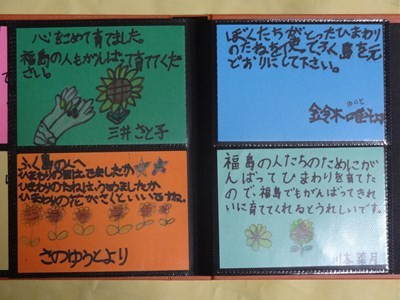 心をこめて育てました。
福島の人もがんばって育ててくだ
さい。
三井さと子
ぼくたちがとったひまわり
のたねを使って
島を元
どおりにして下さい。
鈴木
ふく島の人へ
ひまわりの芽はでましたか
ひまわりのたねは、うめましたか
ひまわりの花がさくといいですね。
さのゆうとより
福島の人たちのためにがん
ばってひまわりを育てた
ので、福島でもがんばってきれ
いに育ててくれるとうれしいです。
月